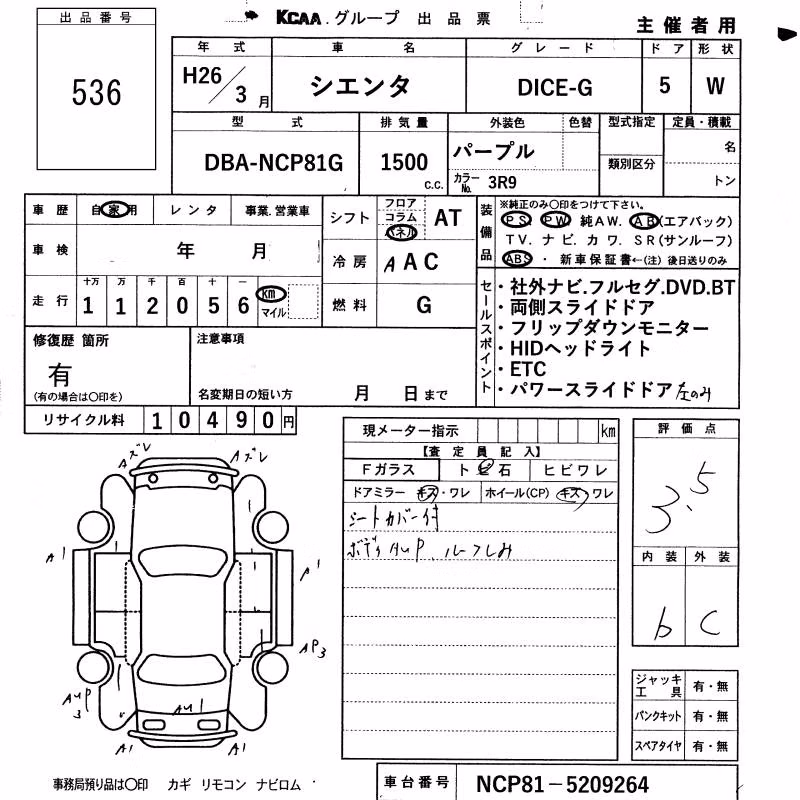 KCAA.グループ 出品票
主催者用
出品番号
536
年式 車名 グレード ドア 形状
H26/3月 シエンタ DICE-G 5 W
型式 排気量 外装色 色替 型式指定 定員・積載
DBA-NCP81G 1500 c.c. パープル 類別区分 名
カラーNo. 3R9 トン
車歴 自家用 レンタ 事業.営業車
車検 年 月
走行 十万 万 千 百 十 一
1 1 2 0 5 6 km マイル
シフト フロア コラム パネル AT
冷房 A AC
燃料 G
装備品 ※純正のみ○印をつけて下さい。
P S. P W. 純A W. A B(エアバック)
T V. ナ ビ. カ ワ. S R(サンルーフ)
ABS ・ 新車保証書←(注) 後日送りのみ
セールスポイント
・社外ナビ.フルセグ.DVD.BT
・両側スライドドア
・フリップダウンモニター
・HIDヘッドライト
・ETC
・パワースライドドア 左のみ
修復歴 箇所
有
(有の場合は○印を)
注意事項
名変期日の短い方 月 日まで
リサイクル料 1 0 4 9 0 円
現メーター指示 km
【査定員記入】
Fガラス ト ビ 石 ヒビワレ
ドアミラー キズ・ワレ ホイール(CP) キズ・ワレ
シートカバー付
ボディAUP、ルーフしみ
評価点
3.5
内装 外装
b C
ジャッキ工具 有・無
パンクキット 有・無
スペアタイヤ 有・無
Aズレ Aズレ
A1 A1
AP3
AUP3
AU1
A1 A1
事務局預り品は○印 カギ リモコン ナビロム
車台番号 NCP81－5209264